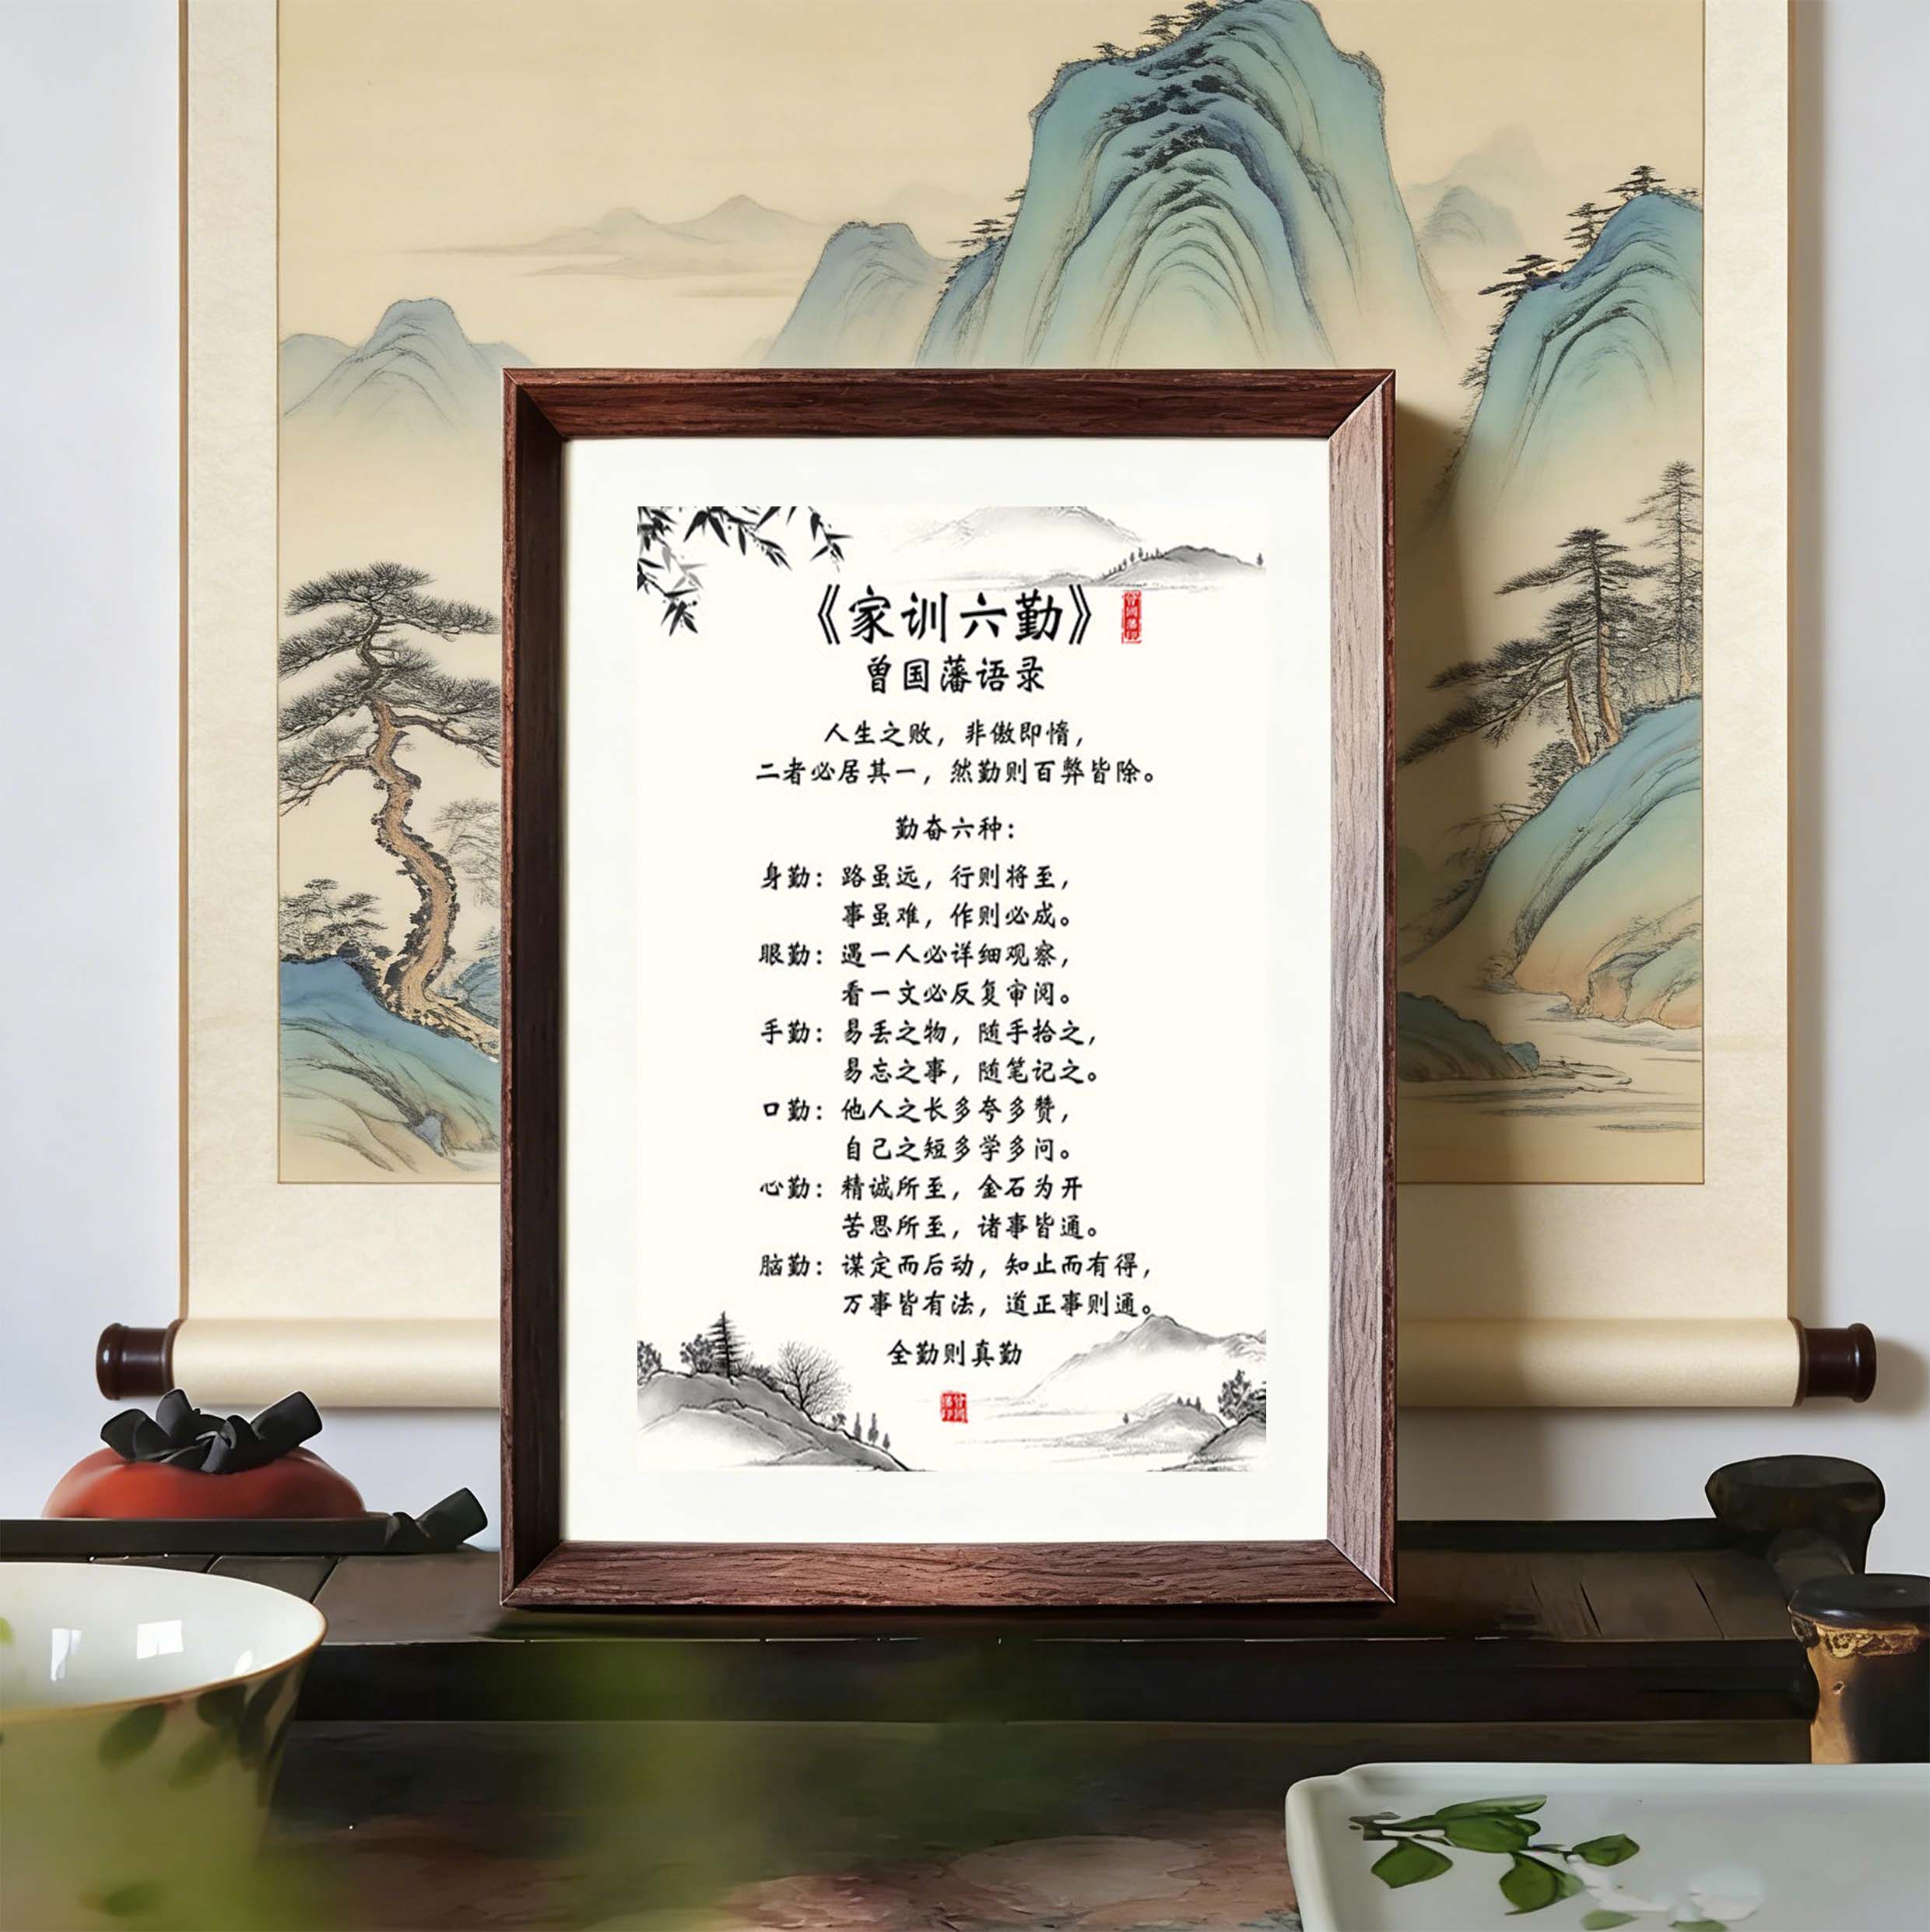 《家训六勤》
曾国藩语录
人生之败，非傲即惰，
二者必居其一，然勤则百弊皆除。
勤奋六种：
身勤：路虽远，行则将至，
事虽难，作则必成。
眼勤：遇一人必详细观察，
看一文必反复审阅。
手勤：易丢之物，随手拾之，
易忘之事，随笔记之。
口勤：他人之长多夸多赞，
自己之短多学多问。
心勤：精诚所至，金石为开
苦思所至，诸事皆通。
脑勤：谋定而后动，知止而有得，
万事皆有法，道正事则通。
全勤则真勤